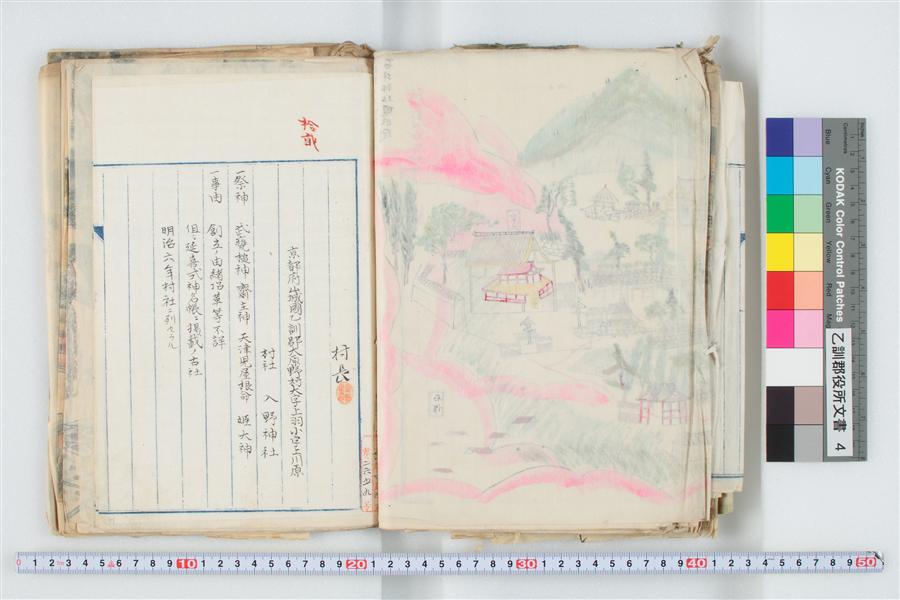 拾弐
村長
京都府山城國乙訓郡大原野村大字上羽小字上川原
村社 入野神社
一祭神 武甕槌神 齋主神 天津児屋根命 姫大神
一事由 創立ノ由緒沿革等不詳
但シ延喜式神名帳ニ掲載ノ古社
明治六年村社ニ列セラル
KODAK Color Control Patches
Blue Cyan Green Yellow Red
Centimetres
Inches
乙訓郡役所文書 4
0 1 2 3 4 5 6 7 8 9 10 1 2 3 4 5 6 7 8 9 20 1 2 3 4 5 6 7 8 9 30 1 2 3 4 5 6 7 8 9 40 1 2 3 4 5 6 7 8 9 50